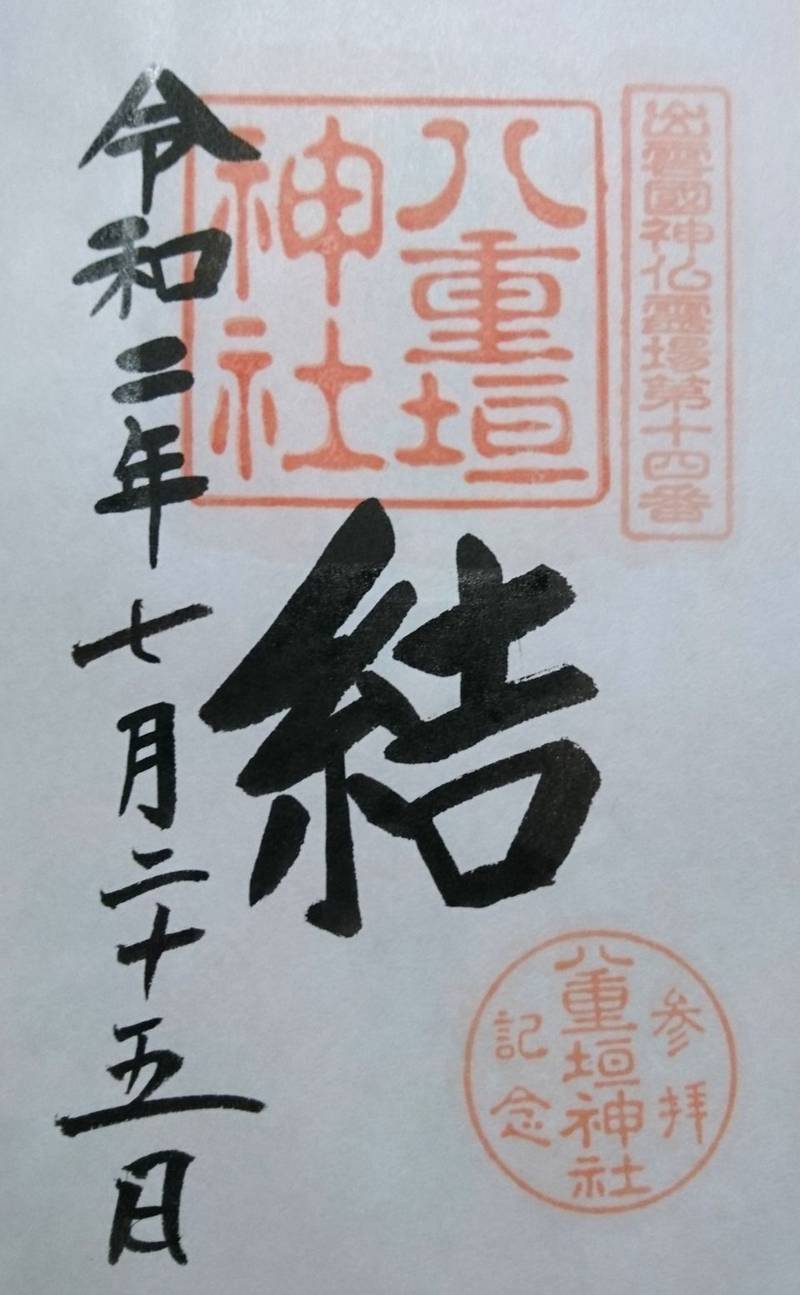 出雲國神仏霊場第十四番
八重垣
神社
結
令和二年七月二十五日
参拝
八重垣神社
記念